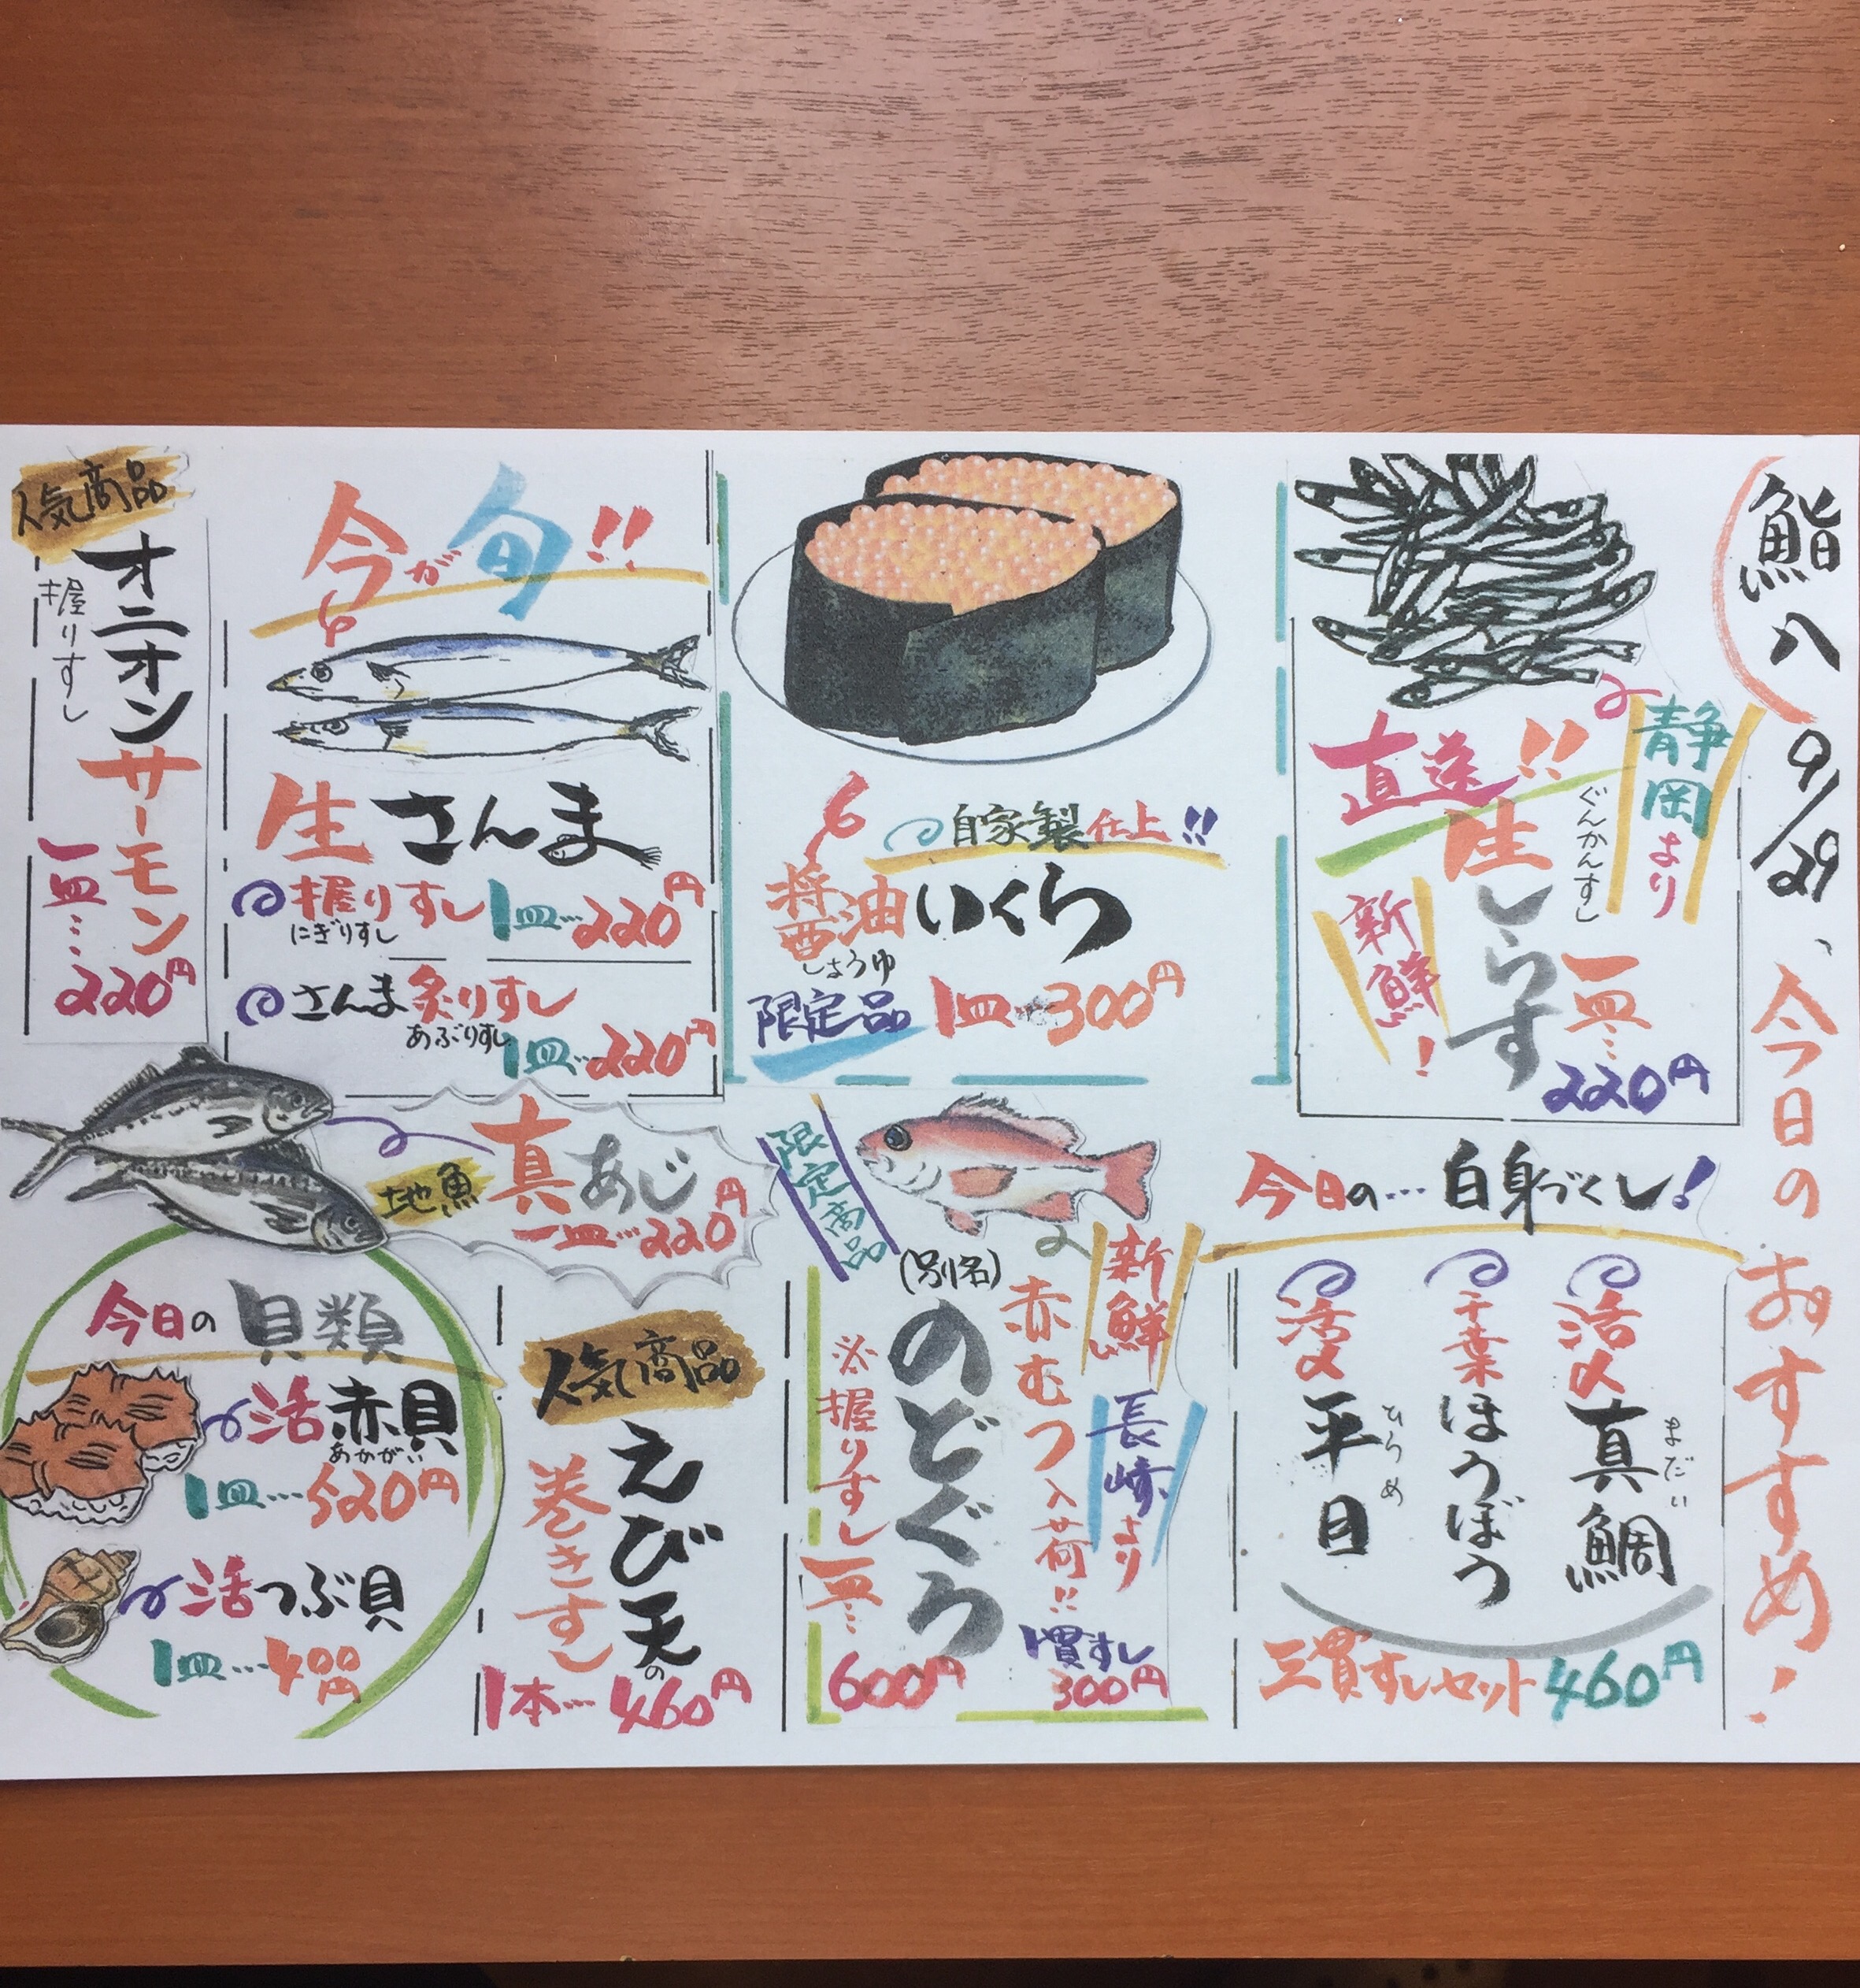 鮨八
9/29、今日のおすすめ!
静岡より
直送!!
生しらす
ぐんかんすし
新鮮!
一皿…
220円
自家製仕上!!
醤油いくら
しょうゆ
限定品
1皿…300円
今が旬!!
生さんま
握りすし 1皿…220円
にぎりすし
さんま炙りすし
あぶりすし
1皿…220円
人気商品
オニオンサーモン
握りすし
一皿…
220円
今日の…白身づくし!
活〆真鯛
まだい
千葉ほうぼう
活〆平目
ひらめ
三貫すしセット460円
限定商品
新鮮
長崎より
赤むつ入荷!!
1貫すし
300円
(別名)
のどぐろ
※握りすし
一皿…
600円
地魚
真あじ
一皿…220円
人気商品
えび天の
巻きすし
1本…460円
今日の貝類
活赤貝
あかがい
1皿…520円
活つぶ貝
1皿…400円